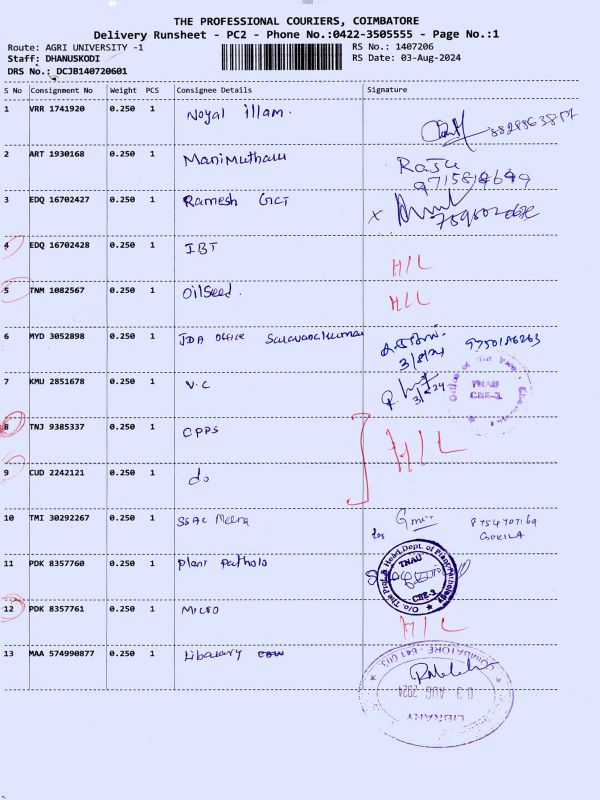 THE PROFESSIONAL COURIERS, COIMBATORE
Delivery Runsheet - PC2 - Phone No.:0422-3505555 - Page No.:1
Route: AGRI UNIVERSITY -1
RS No.: 1407206
Staff: DHANUSKODI
RS Date: 03-Aug-2024
DRS No.: DCJB140720601
S No Consignment No Weight PCS Consignee Details Signature
1 VRR 1741920 0.250 1 Noyal illam.
2 ART 1930168 0.250 1 Manimuthu
Raju
3 EDQ 16702427 0.250 1 Ramesh GCT
X
4 EDQ 16702428 0.250 1 IBT
H/L
5 TNM 1082567 0.250 1 oilseed.
H/L
6 MYD 3052898 0.250 1 JDA office Saravanakumar
3/8/24
7 KMU 2851678 0.250 1 V.C
3/8/24
TNAU
CBE-3
8 TNJ 9385337 0.250 1 CPPS
H/L
9 CUD 2242121 0.250 1 do
10 TMI 30292267 0.250 1 SSAC Meera
for
GOKILA
11 PDK 8357760 0.250 1 plant patholo
O/o. The Prof. & Head, Dept. of Plant Pathology
TNAU
CBE-3
12 PDK 8357761 0.250 1 Micro
H/L
13 MAA 574990877 0.250 1 Libarary
COIMBATORE - 641 003.
03 AUG 2024
LIBRARY